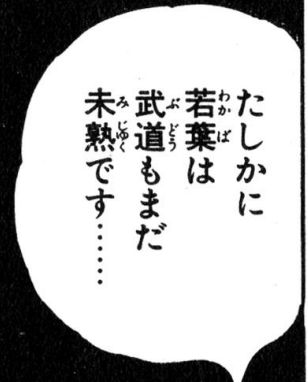 たしかに
若葉は
武道もまだ
未熟です……